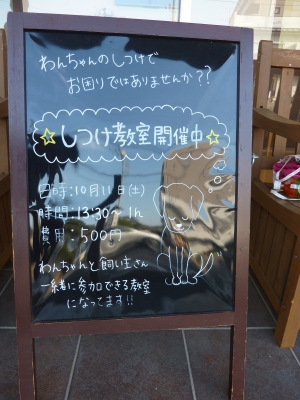 わんちゃんのしつけで
お困りではありませんか??
☆しつけ教室開催中☆
日時:10月11日(土)
時間:13:30〜1h
費用:500円
わんちゃんと飼い主さん
一緒に参加できる教室
になってます!!